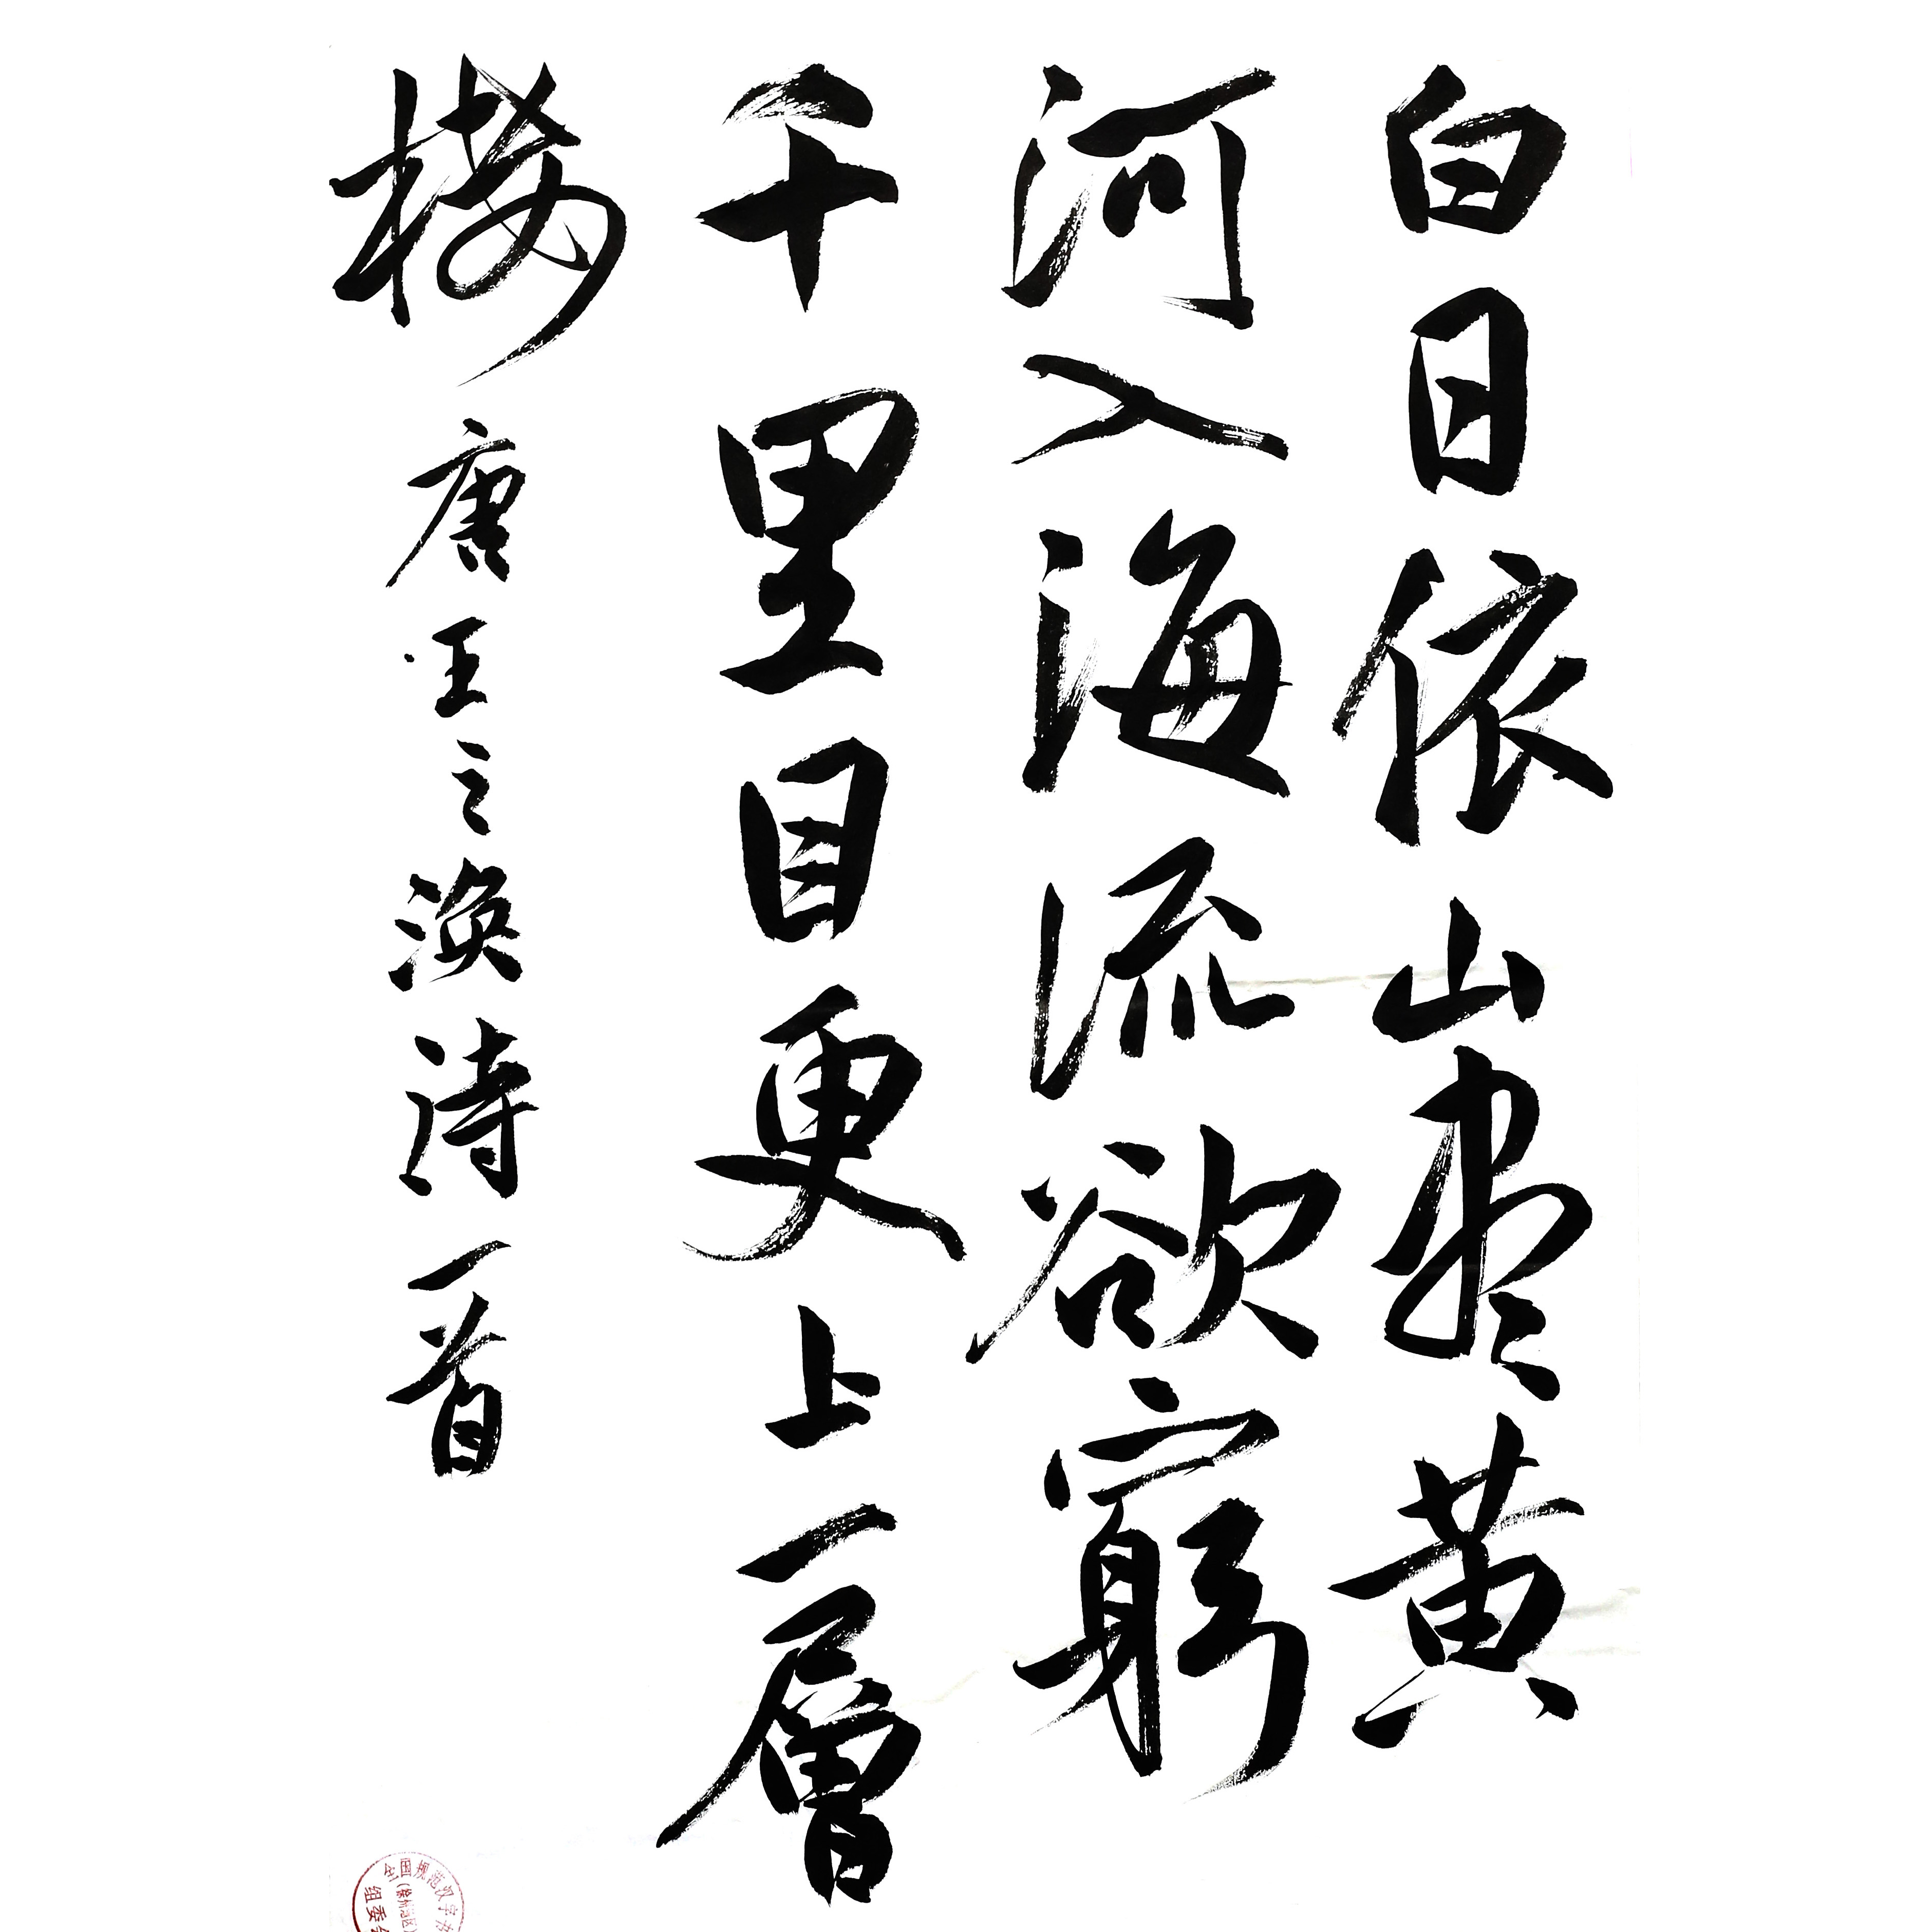 白日依山盡黄
河入海流欲窮
千里目更上一層
楼唐王之渙詩一首
全国规范汉字书
组委会